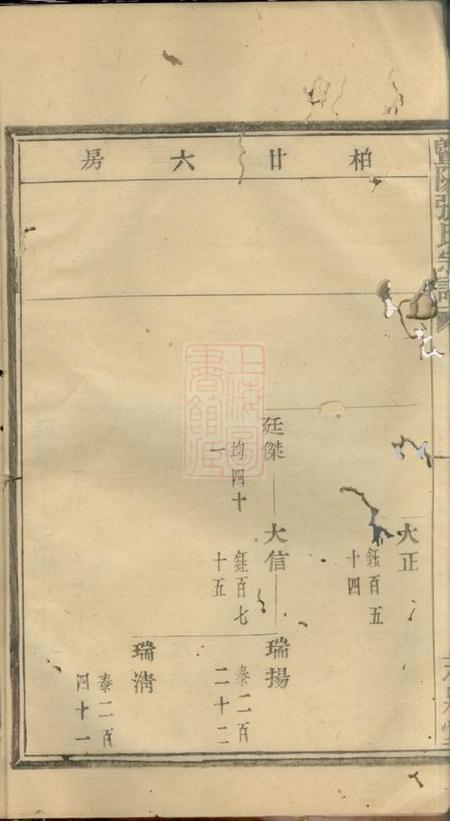 暨陽張氏宗譜
柏廿六房
大正
鈺百五
十四
廷傑
均四十
一
大信
鈺百七
十五
瑞揚
泰二百
二十二
瑞清
泰二百
四十一
上海圖書館藏